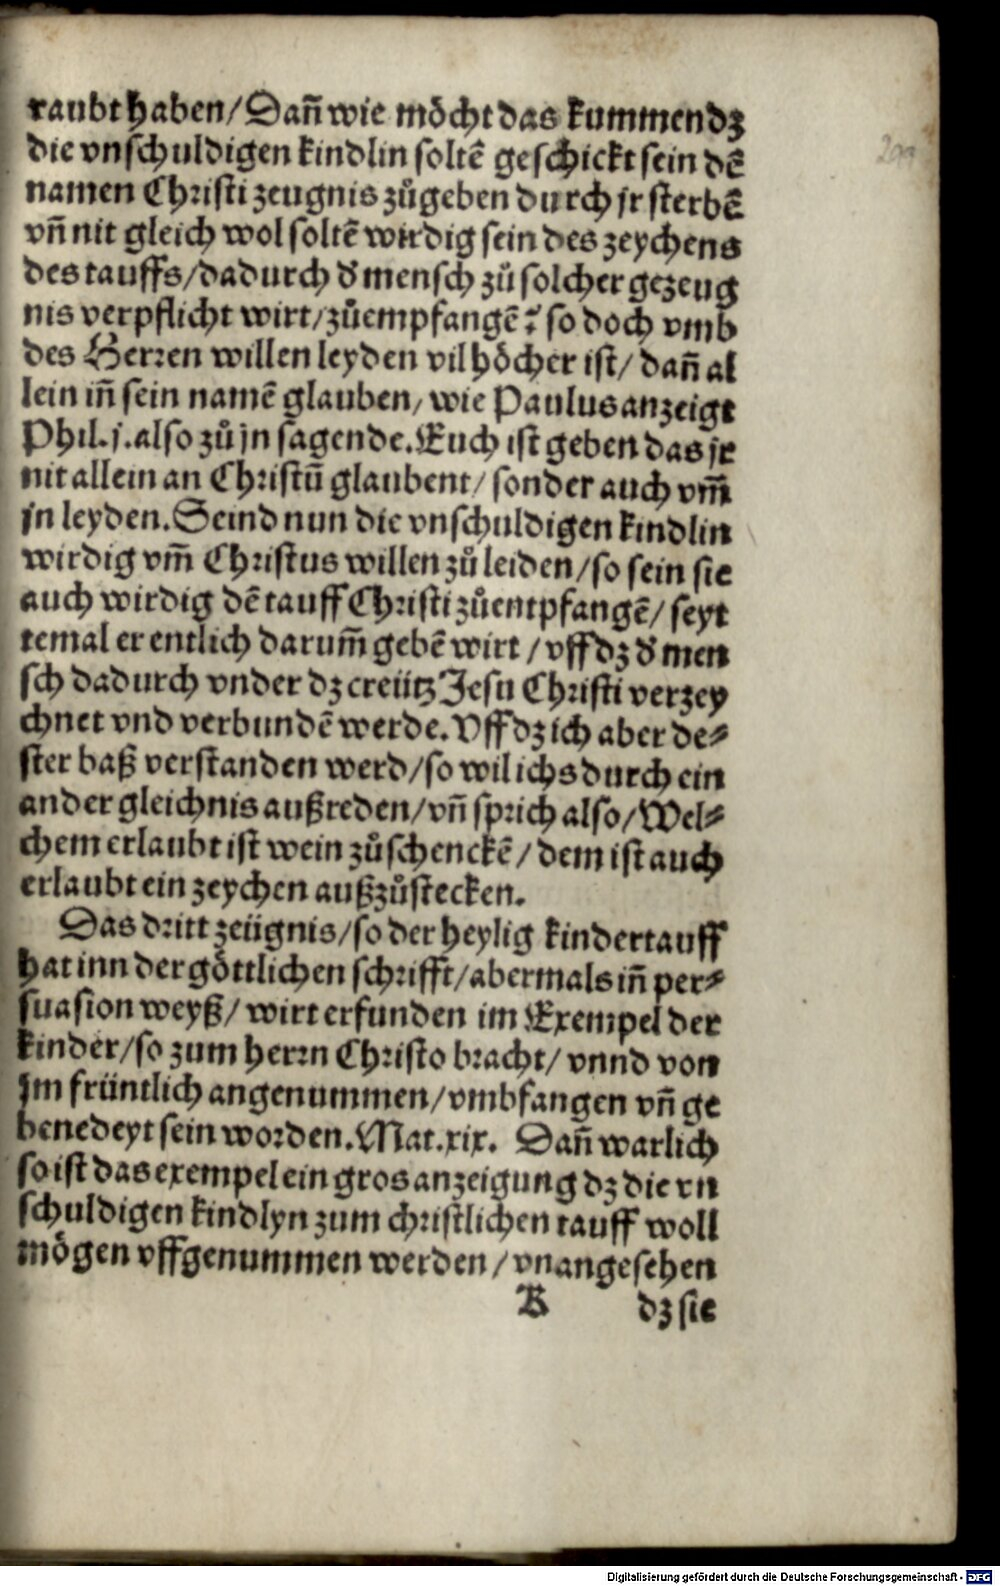 raubt haben/Dañ wie möcht das kummen dz
die vnschuldigen kindlin soltē geschickt sein dē
namen Christi zeugnis zůgeben durch jr sterbē
vñ nit gleich wol soltē wirdig sein des zeychens
des tauffs/dadurch d' mensch zů solcher gezeug
nis verpflicht wirt/zůempfangē? so doch vmb
des Herren willen leyden vil höcher ist/ dañ al
lein iñ sein namē glauben/ wie Paulus anzeigt
Phil.j.also zů jn sagende.Euch ist geben das jr
nit allein an Christū glaubent/ sonder auch vm̄
jn leyden.Seind nun die vnschuldigen kindlin
wirdig vm̄ Christus willen zů leiden/so sein sie
auch wirdig dē tauff Christi zůentpfangē/ seyt
temal er entlich darum̄ gebē wirt/vff dz d' men
sch dadurch vnder dz creütz Jesu Christi verzey
chnet vnd verbundē werde.Vff dz ich aber de⸗
ster baß verstanden werd/so wil ichs durch ein
ander gleichnis außreden/vñ sprich also/Wel⸗
chem erlaubt ist wein zůschenckē/dem ist auch
erlaubt ein zeychen außzůstecken.
Das dritt zeügnis/so der heylig kindertauff
hat inn der göttlichen schrifft/abermals iñ per⸗
suasion weyß/ wirt erfunden im Exempel der
kinder/so zum herrn Christo bracht/ vnnd von
jm früntlich angenummen/vmbfangen vñ ge
benedeyt sein worden.Mat.xix. Dañ warlich
so ist das exempel ein gros anzeigung dz die vn
schuldigen kindlyn zum christlichen tauff woll
mögen vffgenummen werden/vnangesehen
B dz sie
Digitalisierung gefördert durch die Deutsche Forschungsgemeinschaft - DFG